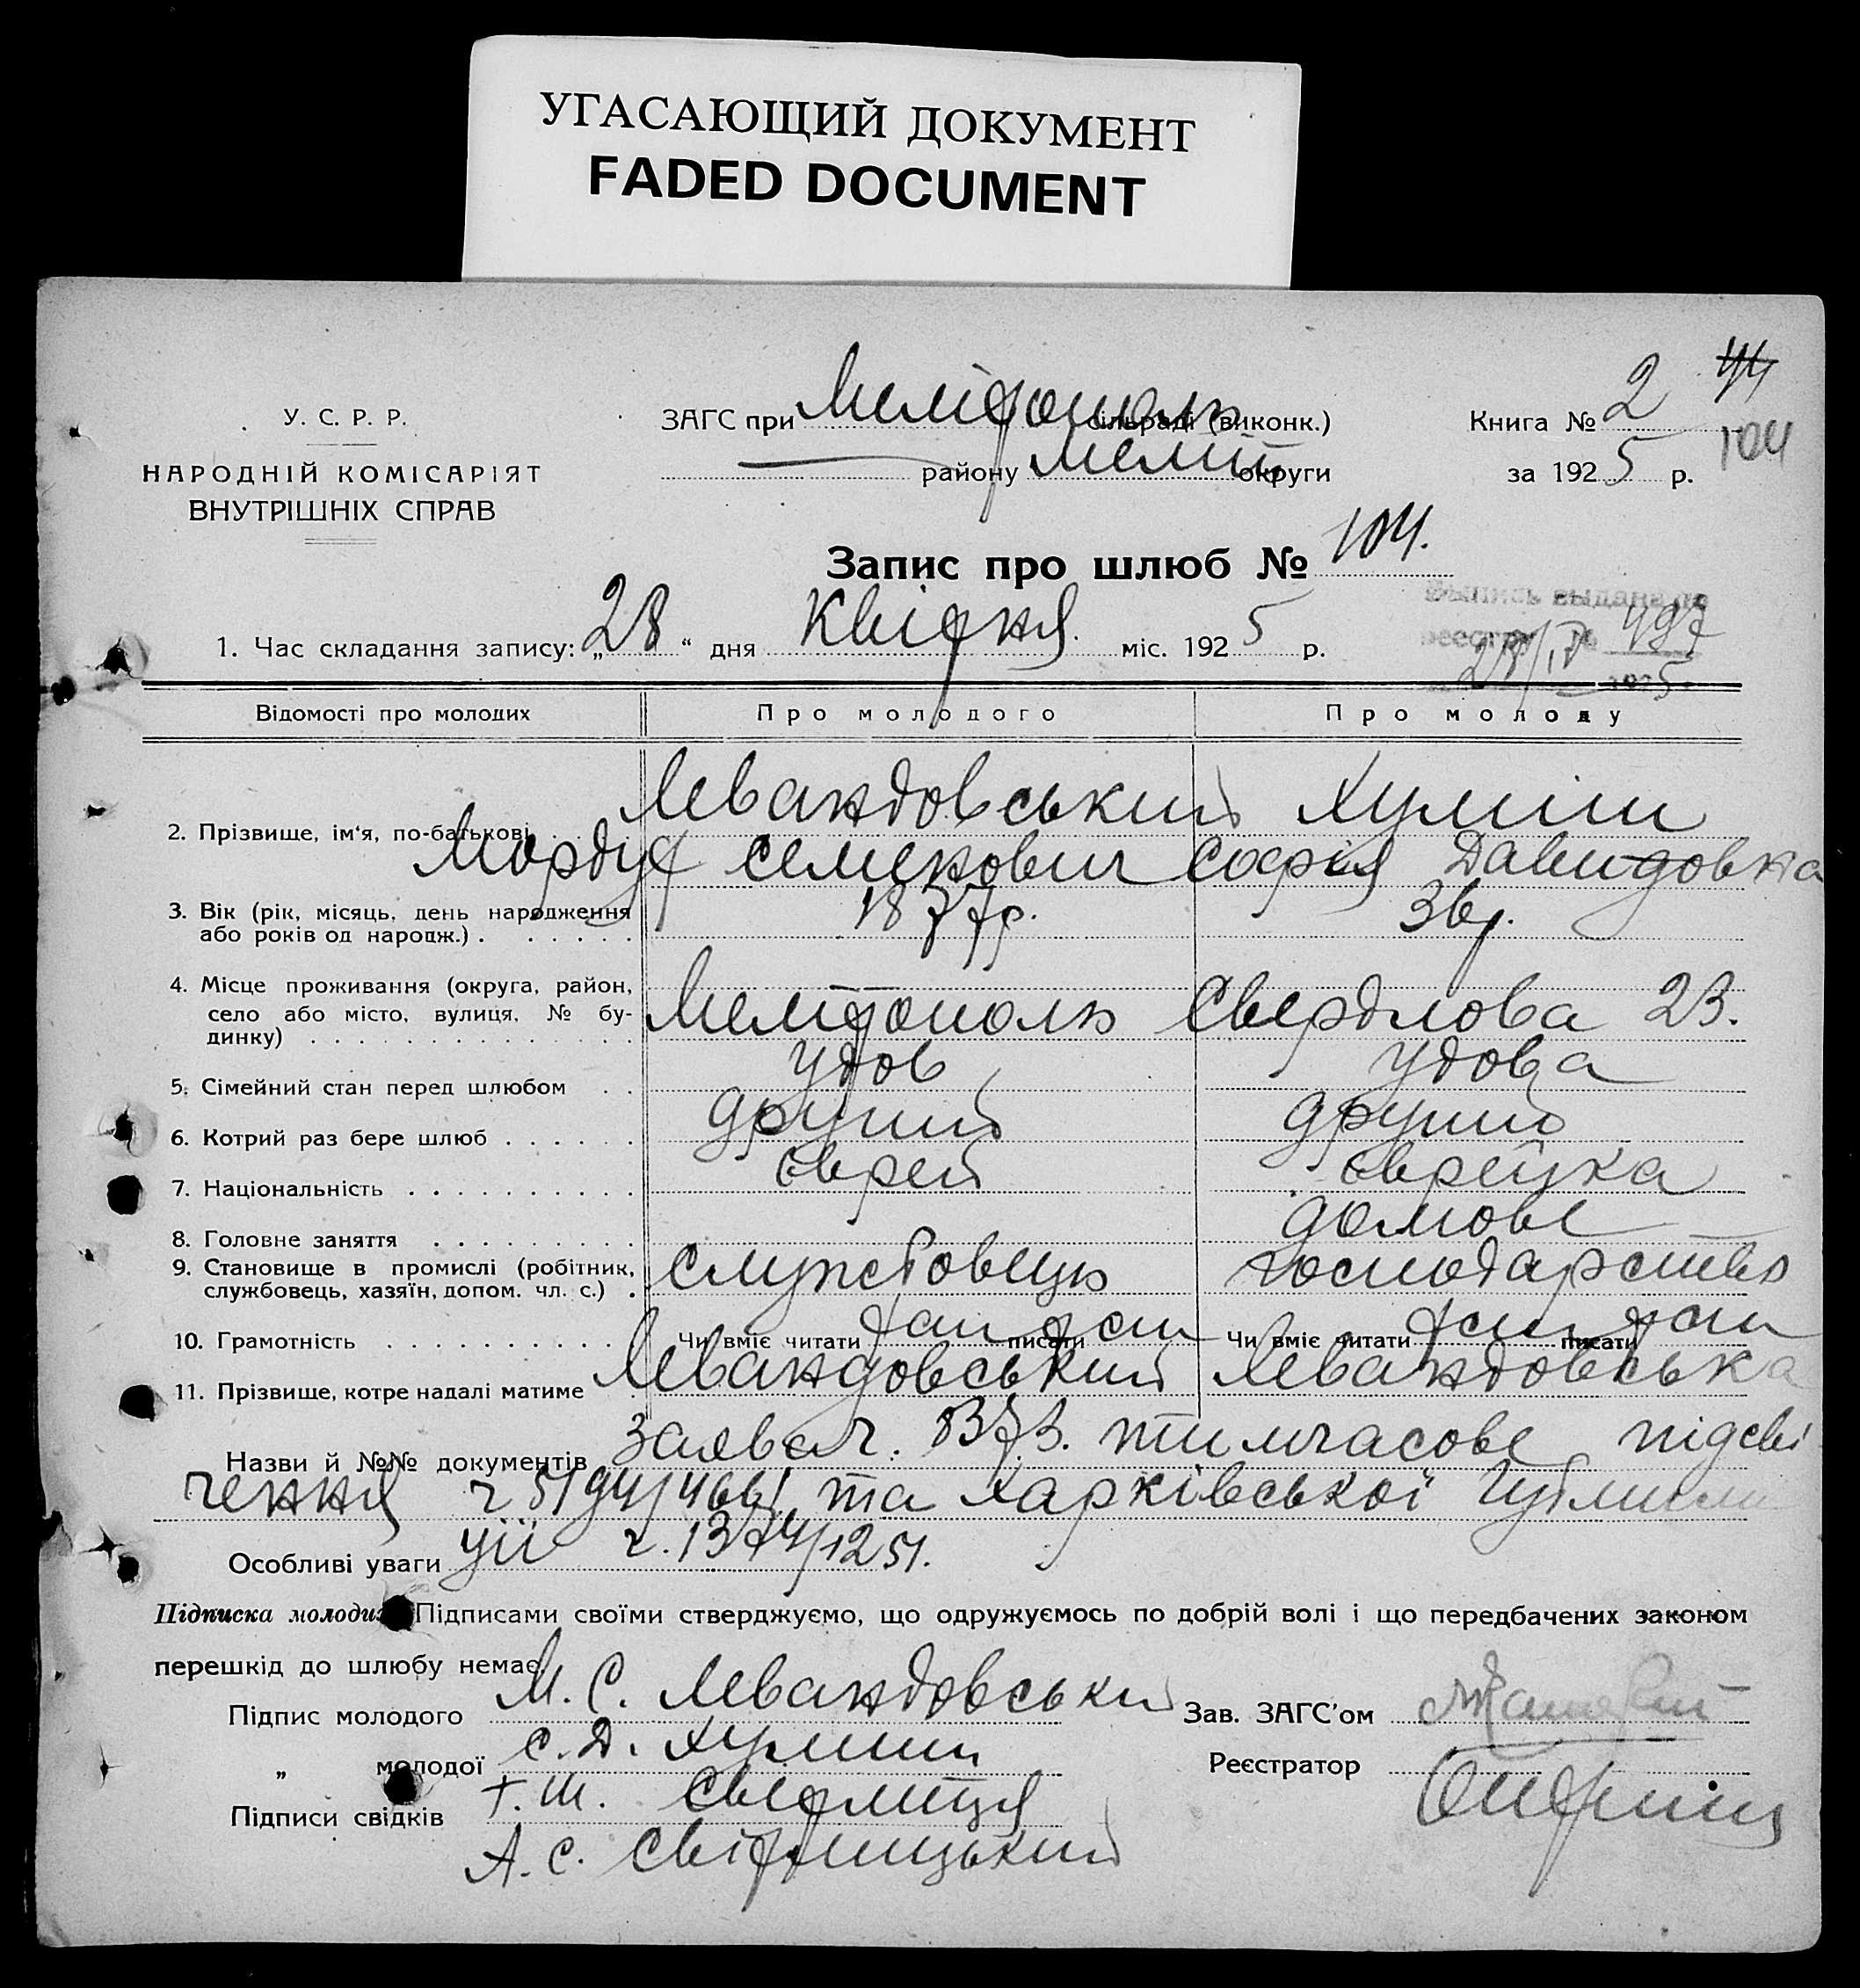 УГАСАЮЩИЙ ДОКУМЕНТ
FADED DOCUMENT
У. С. Р. Р.
НАРОДНІЙ КОМІСАРІЯТ
ВНУТРІШНІХ СПРАВ
ЗАГС при Мелітополь сільраді (виконк.)
району Меліт округи
Книга № 2
104
за 1925 р.
Запис про шлюб № 104.
Выпись выдана по
реестру № 497
28/IV 1925
1. Час складання запису: „28“ дня Квітня міс. 1925 р.
Відомості про молодих Про молодого Про молоду
2. Прізвище, ім'я, по-батькові Левандовський Хулиш
Мордух Семенович Софія Давидовна
3. Вік (рік, місяць, день народження 1877р. 36р.
або років од народж.)
4. Місце проживання (округа, район,
село або місто, вулиця, № бу-
динку) Мелітополь Свердлова 23.
5. Сімейний стан перед шлюбом удов удова
6. Котрий раз бере шлюб другий другий
7. Національність єврей єврейка
8. Головне заняття домове
9. Становище в промислі (робітник, службовець господарство
службовець, хазяїн, допом. чл. с.)
10. Грамотність Чи вміє читати так писати так Чи вміє читати так писати так
11. Прізвище, котре надалі матиме Левандовський Левандовська
Назви й №№ документів Заява ч. 8373. тимчасове підсві
чення ч 5194/4661 та Харківської Губмили
Особливі уваги ції ч. 1374/1251.
Підписка молодих Підписами своїми стверджуємо, що одружуємось по добрій волі і що передбачених законом
перешкід до шлюбу немає.
Підпис молодого М. С. Левандовський Зав. ЗАГС'ом
„ молодої С. Д. Хулиш Реєстратор
Підписи свідків Т. Ш.
А. С. Свірлицький